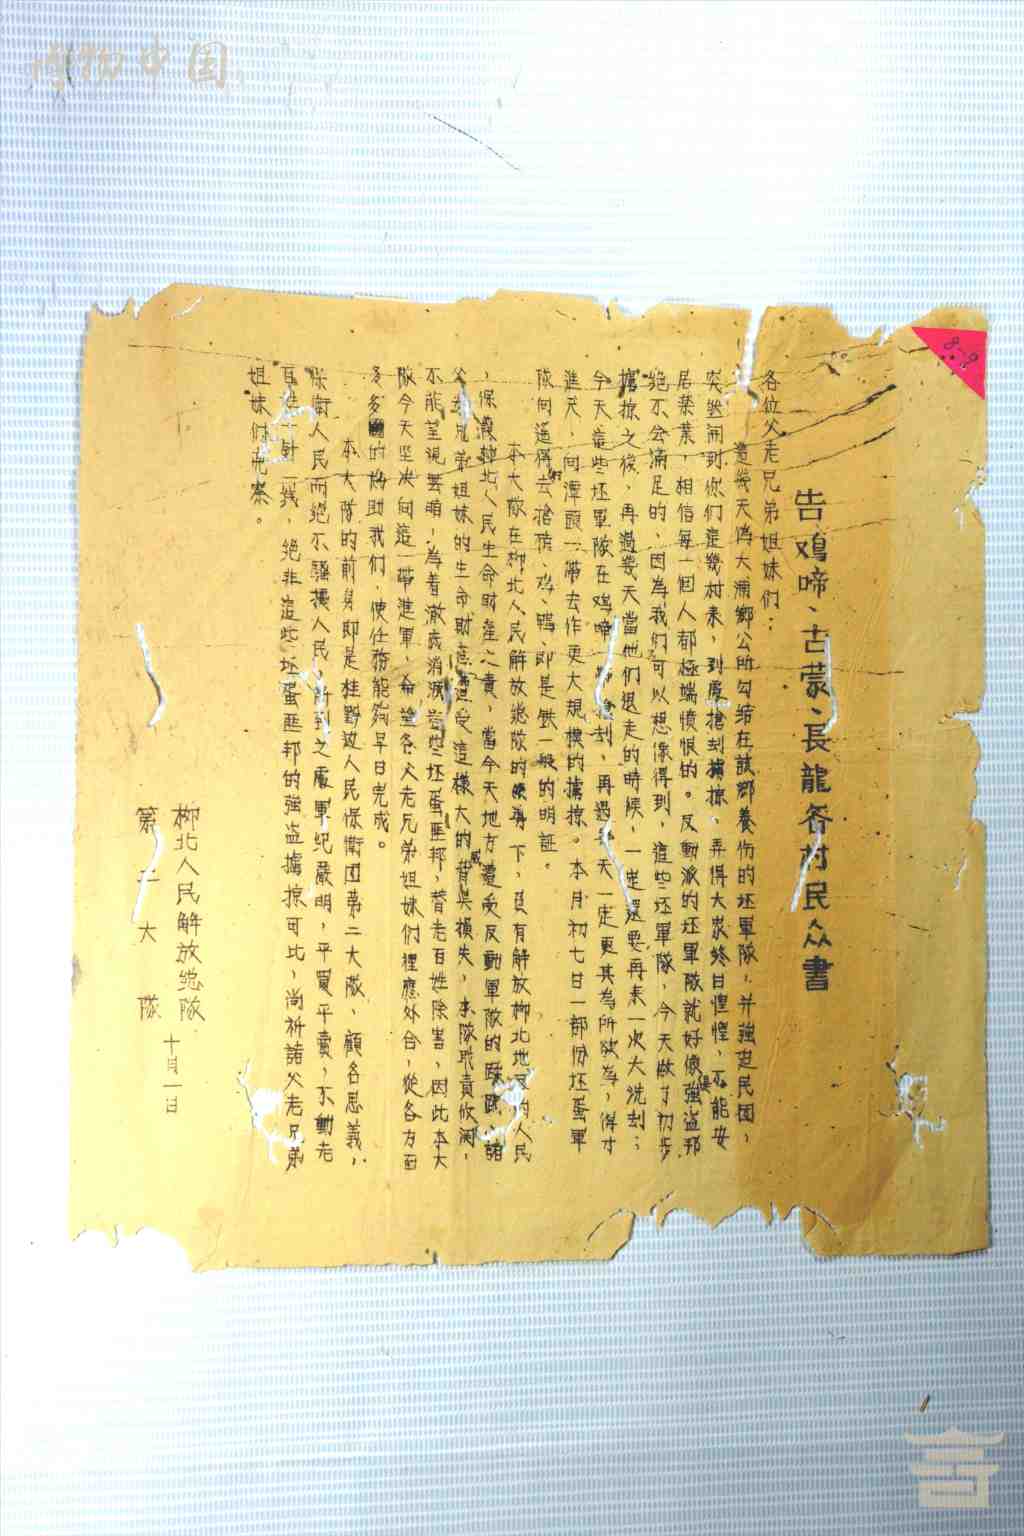 告鸡啼、古蒙、長龍各村民众書
各位父老兄弟姐妹们：
這幾天偽大浦鄉公所勾结在該鄉養伤的坯軍隊，并強迫民团，
突然闹到你们這幾村来，到處搶刦擄掠，弄得大家終日惶惶，不能安
居樂業，相信每一個人都極端憤恨的。反動派的坯軍隊就好像強盗邦
绝不会满足的，因為我们可以想像得到，這些坯軍隊，今天做了初步
擄掠之後，再過幾天當他们退走的時候，一定還要再来一次大洗刦；
今天這些坯軍隊在鸡啼一帶搶刦，再過天一定更其為所欲為，得寸
進尺，向潭頭一帶去作更大規模的擄掠。本月初七日一部份坯蛋軍
隊向這得去搶猪、鸡、鴨，即是鉄一般的明証。
本大隊在柳北人民解放総隊的領導下，負有解放柳北地区的人民
，保護柳北人民生命財產之責，當今天地方遭受反動軍隊的，諸
父老兄弟姐妹的生命財產遭受這樣大的威脅與損失，本隊职責攸関，
不能坐視罢頭，為着澈底消滅這些坯蛋匪邦，替老百姓除害，因此本大
隊今天坚决向這一帶進軍，希望各父老兄弟姐妹们裡應外合，從各方面
多多的協助我们，使任務能夠早日完成。
本大隊的前身即是桂黔边人民保衛团第二大隊，顧名思義，
保衛人民而绝不騷擾人民，所到之處軍纪嚴明，平買平賣，不動老
百姓一針一线，绝非這些坯蛋匪邦的強盗擄掠可比，尚祈諸父老兄弟
姐妹们見察。
柳北人民解放総隊
第二大隊
十月一日
8-9
博物中国